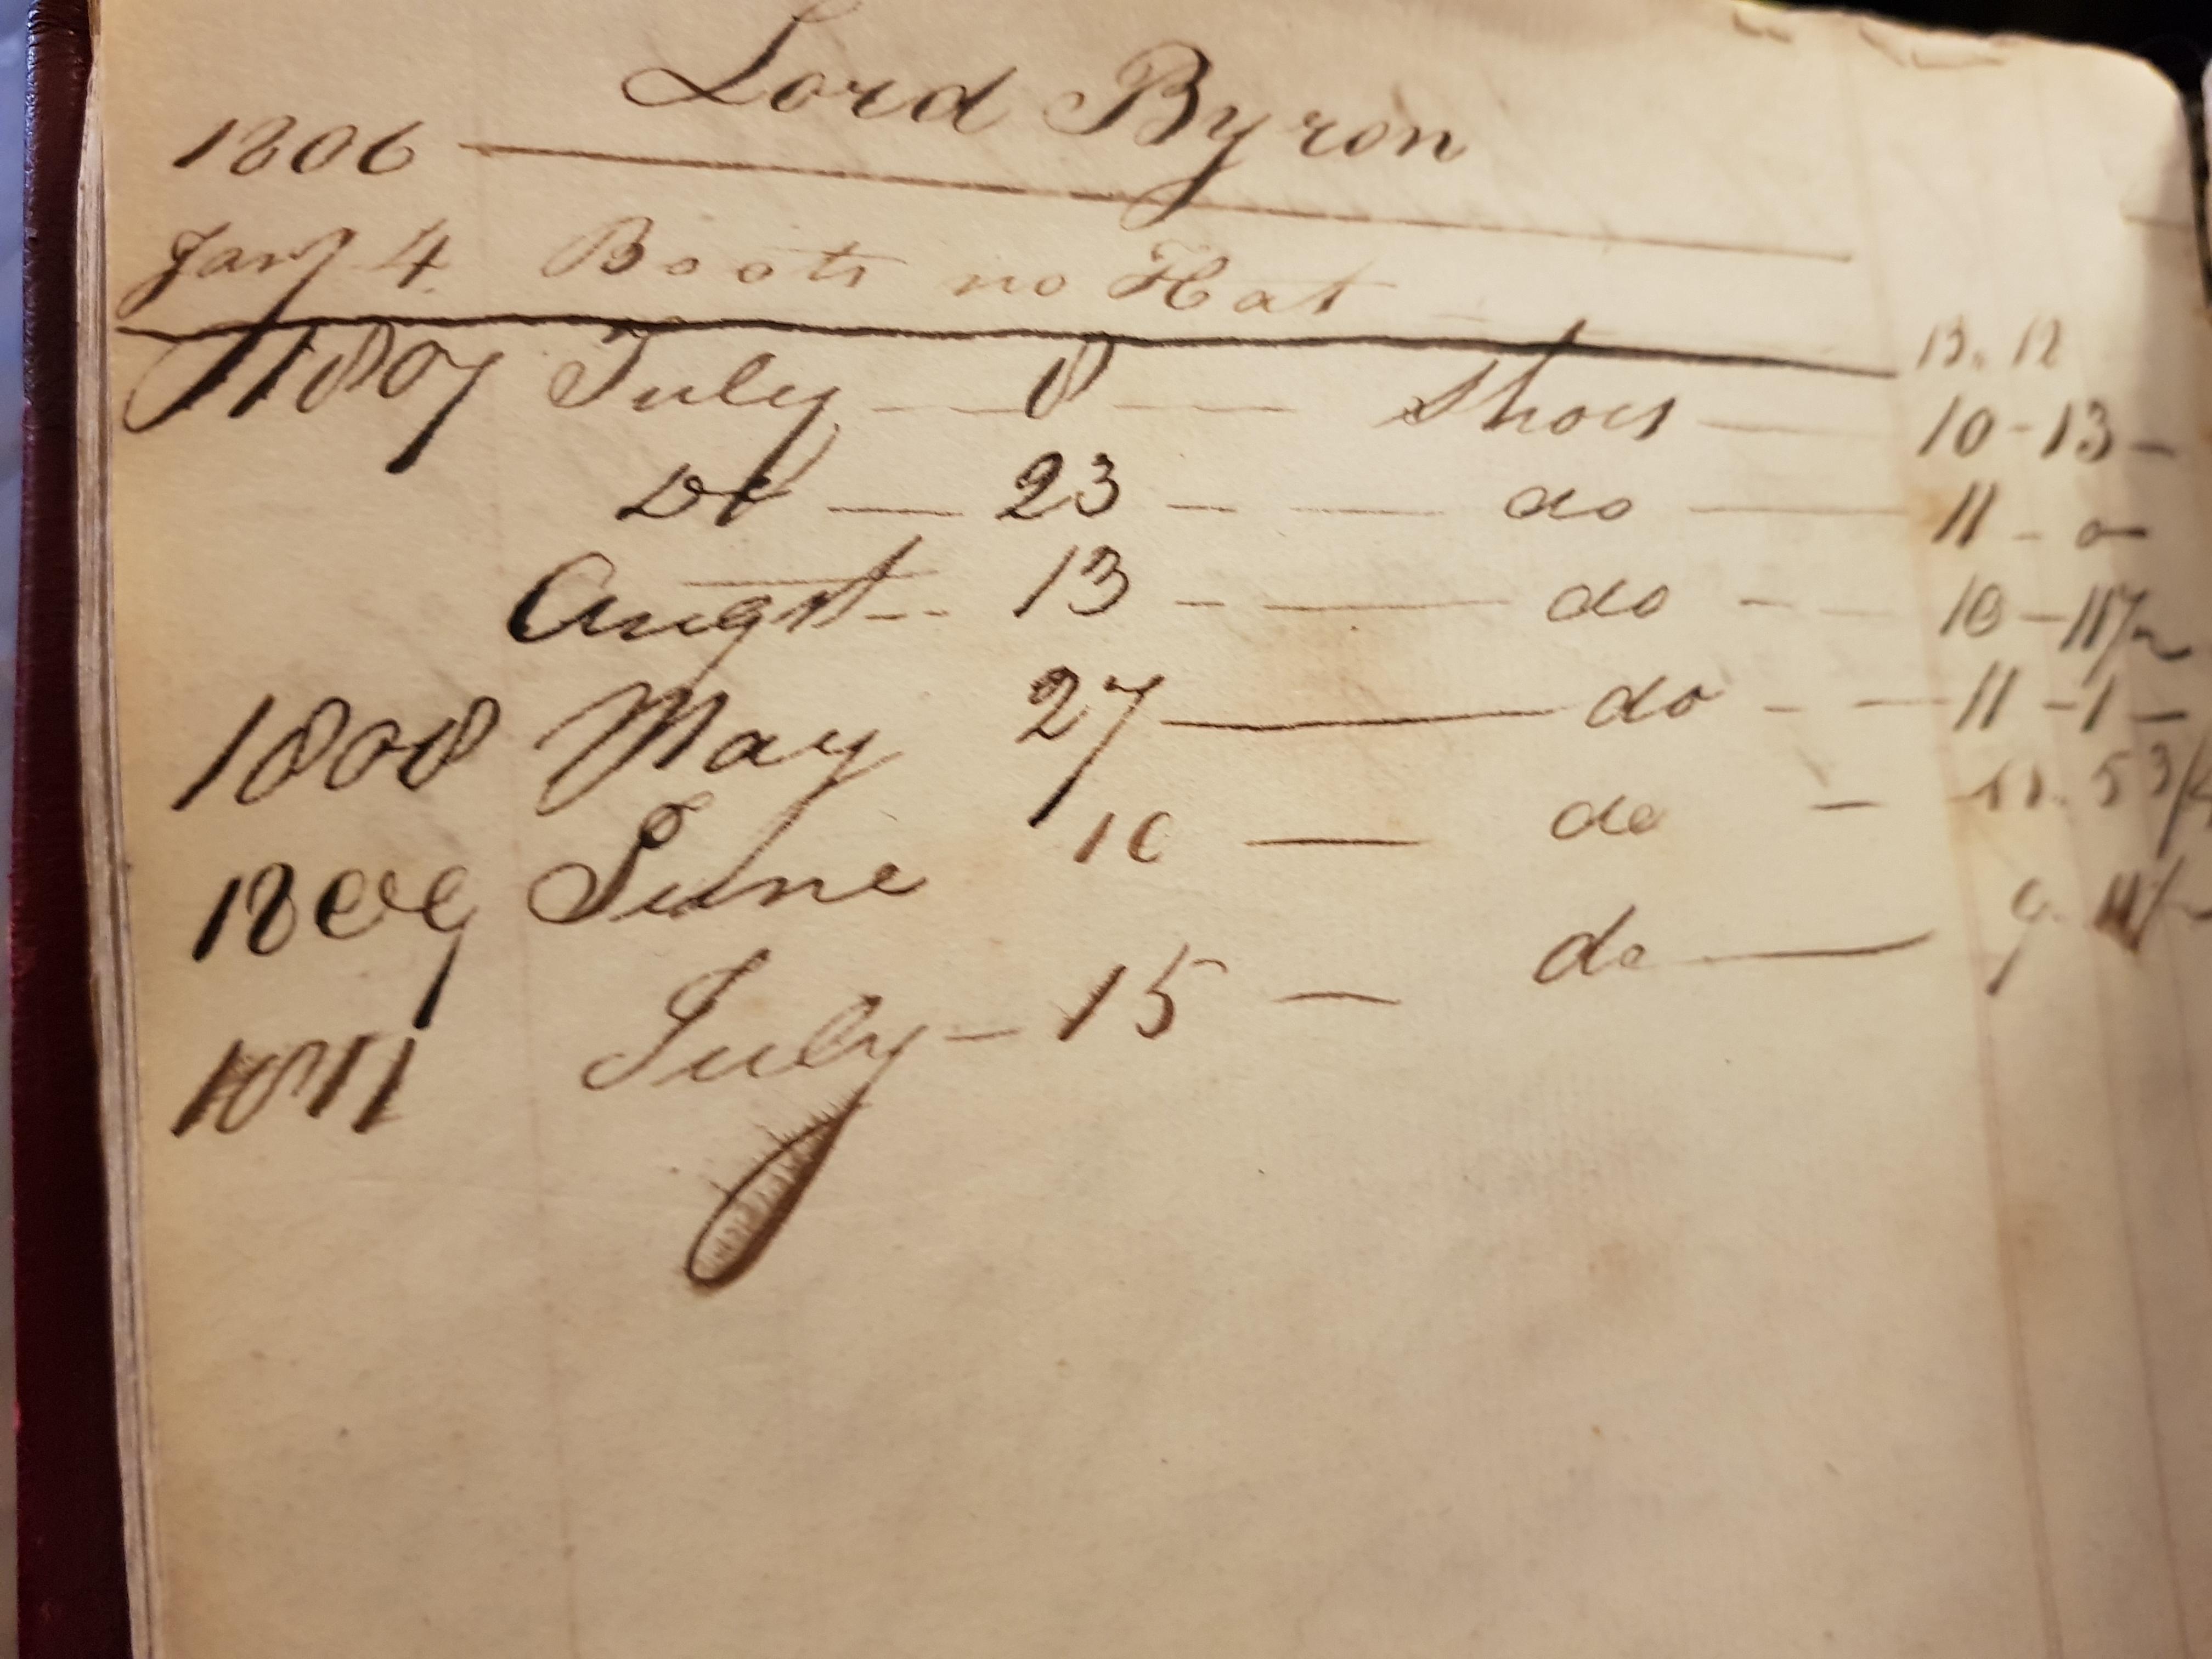 Lord Byron
1806
Jany 4 Boots no Hat - 13. 12
1807 July - - 8 - - Shoes - 10 - 13 -
Do - 23 - - do - 11 - 0
Augst - - 13 - - do - - 10 - 11 1/2
1808 May 27 - do - - 11 - 1 -
1809 June 10 - do - 11. 5 3/4
1811 July - 15 - do - 9. 11 1/2